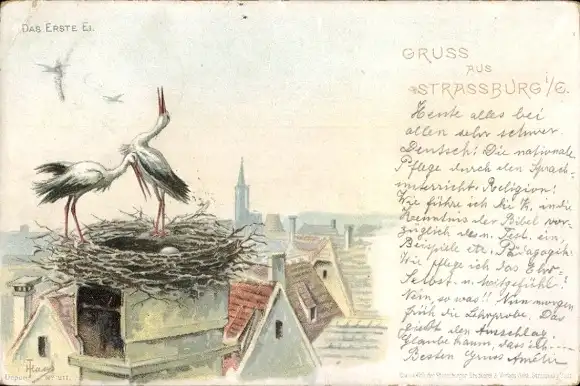 DAS ERSTE EI.
GRUSS
AUS
STRASSBURG i/E.
Heute alles bei
allen sehr schwer.
Deutsch: Die nationale
Pflege durch den Sprach-
unterricht. Religion:
Wie führe ich die K. in die
Kenntnis der Bibel vor-
züglich des n. Test. ein,
Beispiele etc. Pädagogik:
Wie pflege ich das Ehr-
Selbst- u. Mitgefühl?
Nein, so was!! Nun morgen
früh die Lehrprobe. Das
giebt den Ausschlag
Glaube kaum, dass ich
Besten Gruss Amélie